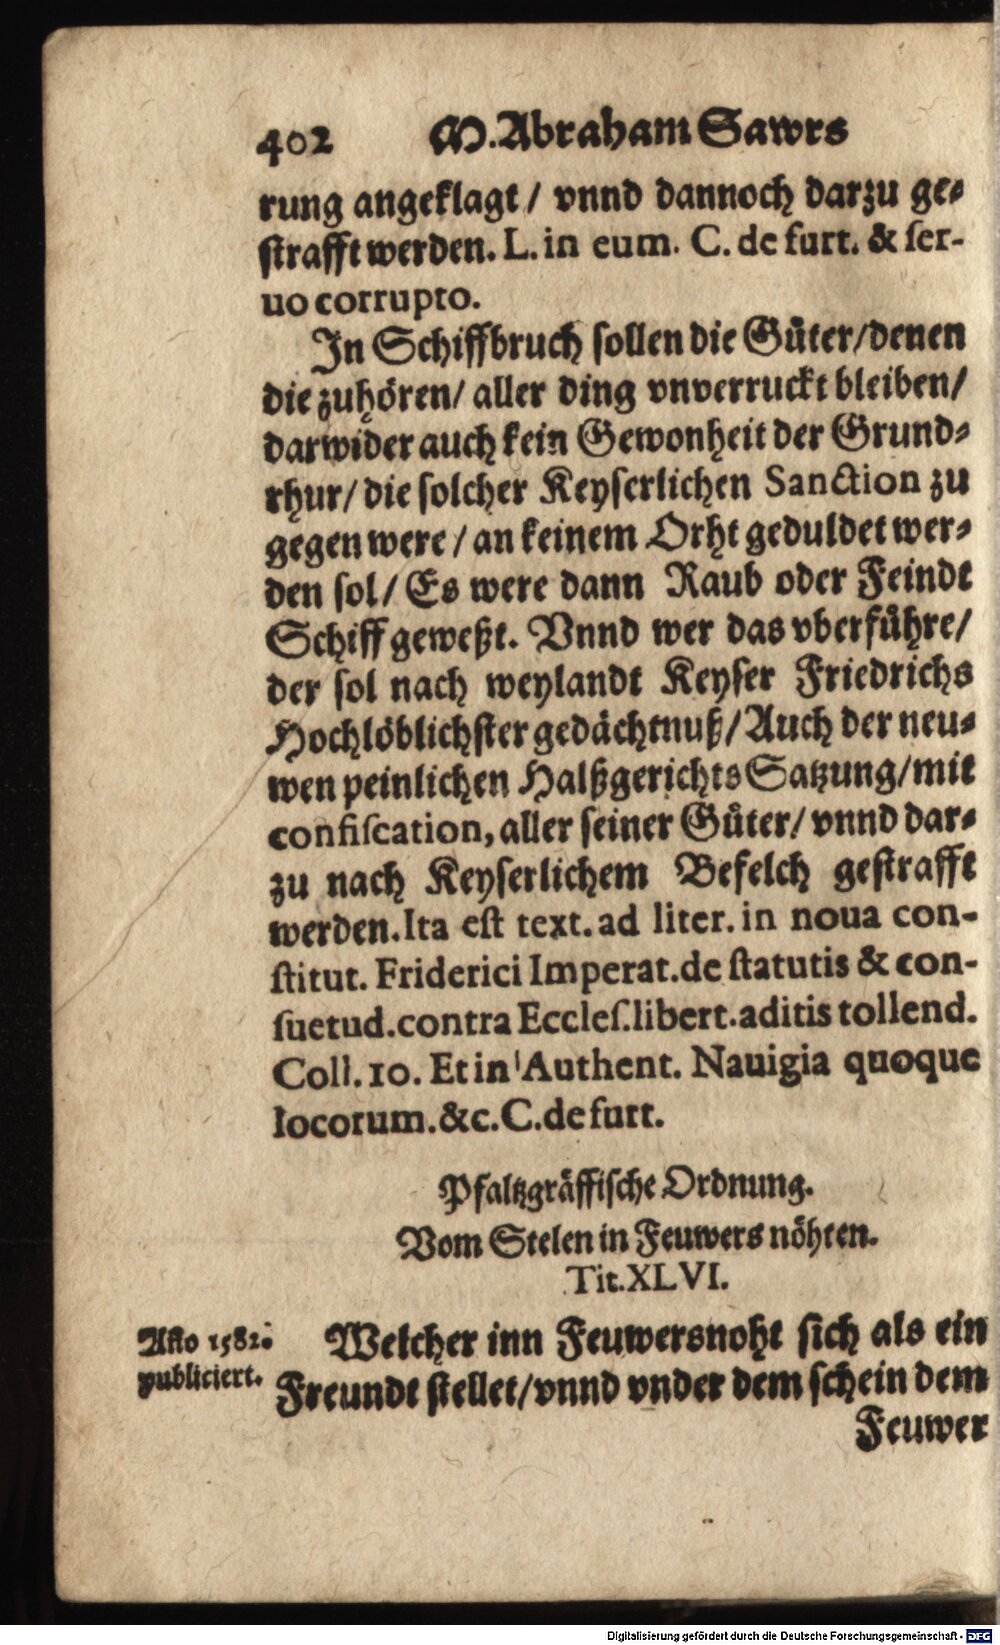 402 M. Abraham Sawrs
rung angeklagt / vnnd dannoch darzu ge-
strafft werden. L. in eum. C. de furt. & ſer-
uo corrupto.
In Schiffbruch sollen die Güter/denen
die zuhören/ aller ding vnverruckt bleiben/
darwider auch kein Gewonheit der Grund-
rhur/ die solcher Keyserlichen Sanction zu
gegen were / an keinem Orht geduldet wer-
den sol/ Es were dann Raub oder Feindt
Schiff geweßt. Vnnd wer das vberführe/
der sol nach weylandt Keyser Friedrichs
Hochlöblichster gedächtnuß/ Auch der neu-
wen peinlichen Halßgerichts Satzung/ mit
confiſcation, aller seiner Güter/ vnnd dar-
zu nach Keyserlichem Befelch gestrafft
werden. Ita eſt text. ad liter. in noua con-
ſtitut. Friderici Imperat. de ſtatutis & con-
ſuetud. contra Eccleſ. libert. aditis tollend.
Coll. 10. Et in Authent. Nauigia quoque
locorum. &c. C. de furt.
Pfaltzgräffische Ordnung.
Vom Stelen in Feuwers nöhten.
Tit. XLVI.
Año 1582.
publiciert.
Welcher inn Feuwersnoht sich als ein
Freundt stellet/ vnnd vnder dem schein dem
Feuwer
Digitalisierung gefördert durch die Deutsche Forschungsgemeinschaft - DFG